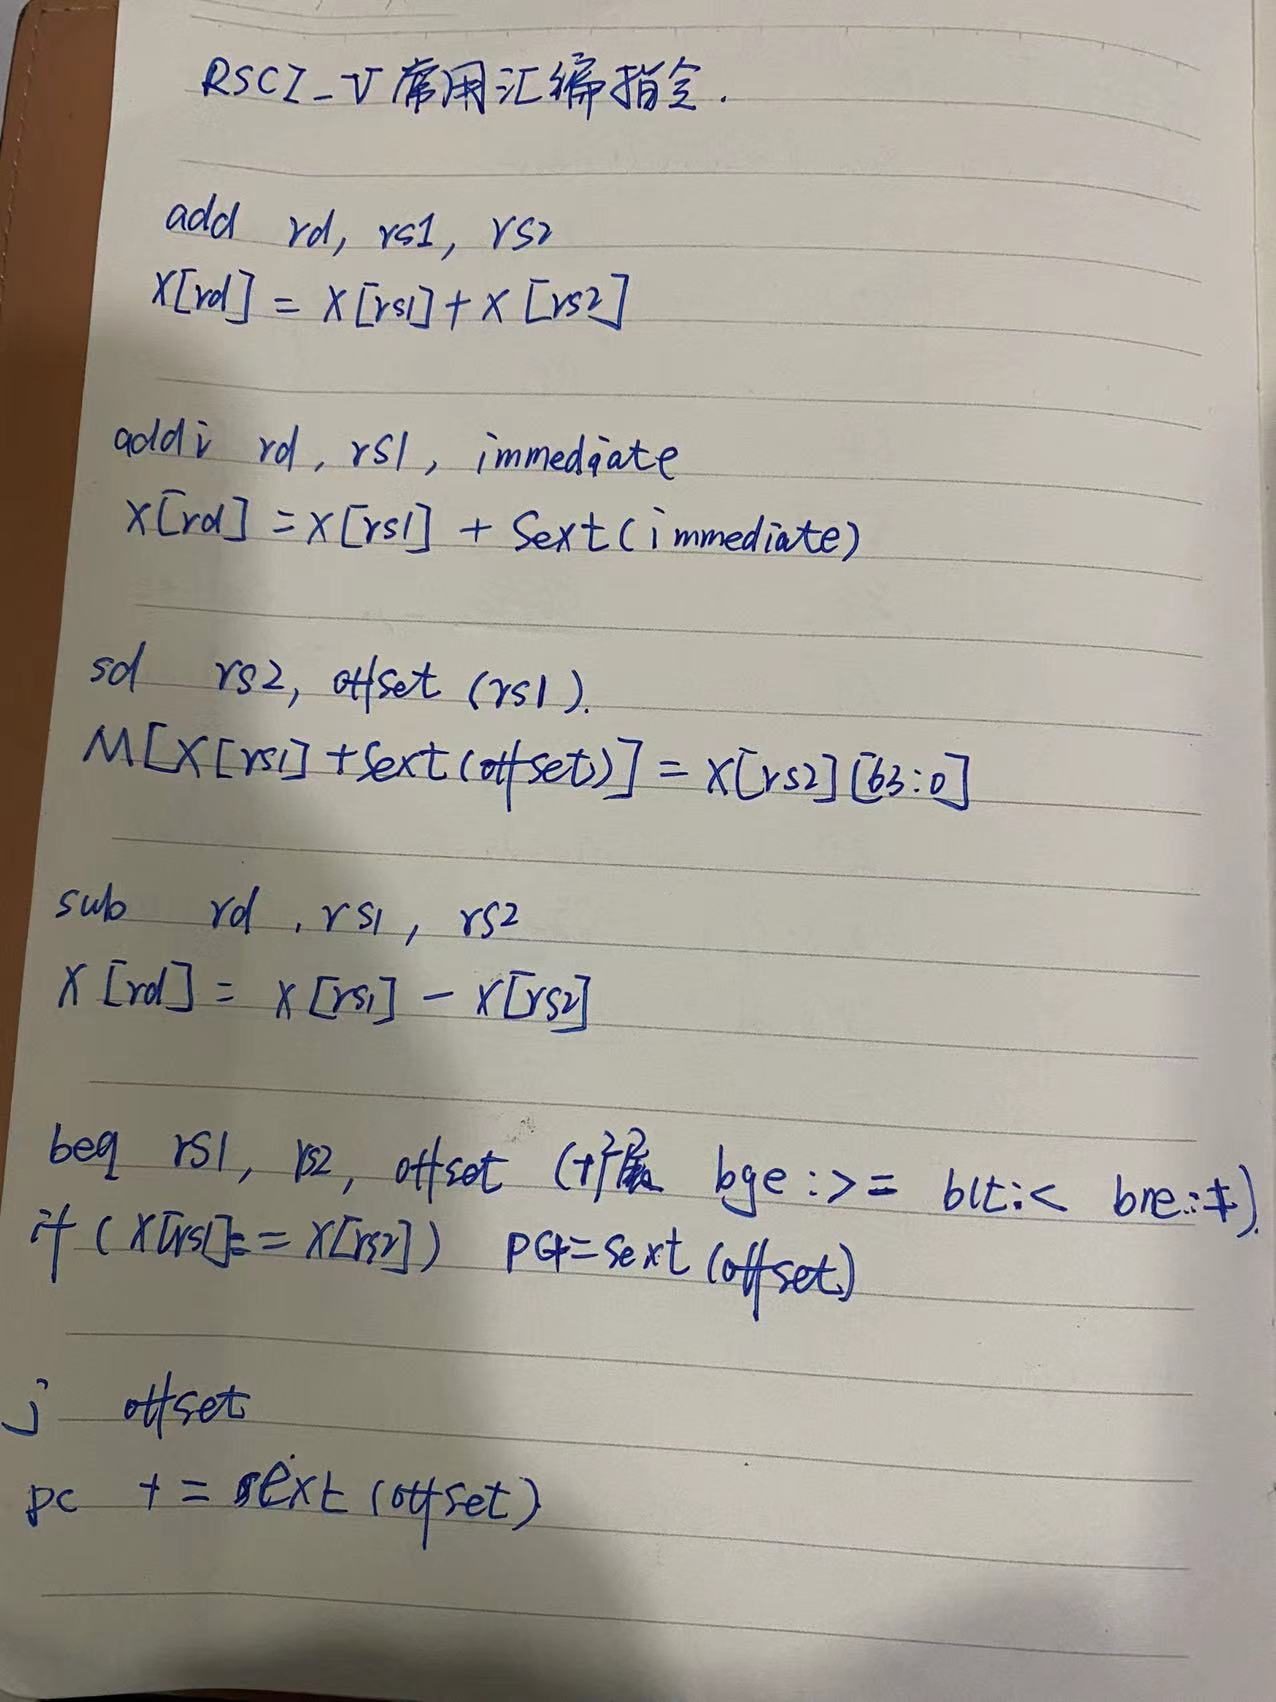 RSCI_V常用汇编指令.
add rd, rs1, rs2
X[rd] = X[rs1] + X[rs2]
addi rd, rs1, immediate
X[rd] = X[rs1] + Sext(immediate)
sd rs2, offset (rs1).
M[X[rs1] + Sext(offset)] = X[rs2][63:0]
sub rd, rs1, rs2
X[rd] = X[rs1] - X[rs2]
beq rs1, rs2, offset (扩展 bge:>= blt:< bne:≠).
if (X[rs1] == X[rs2]) PC+=Sext(offset)
j offset
pc += sext(offset)